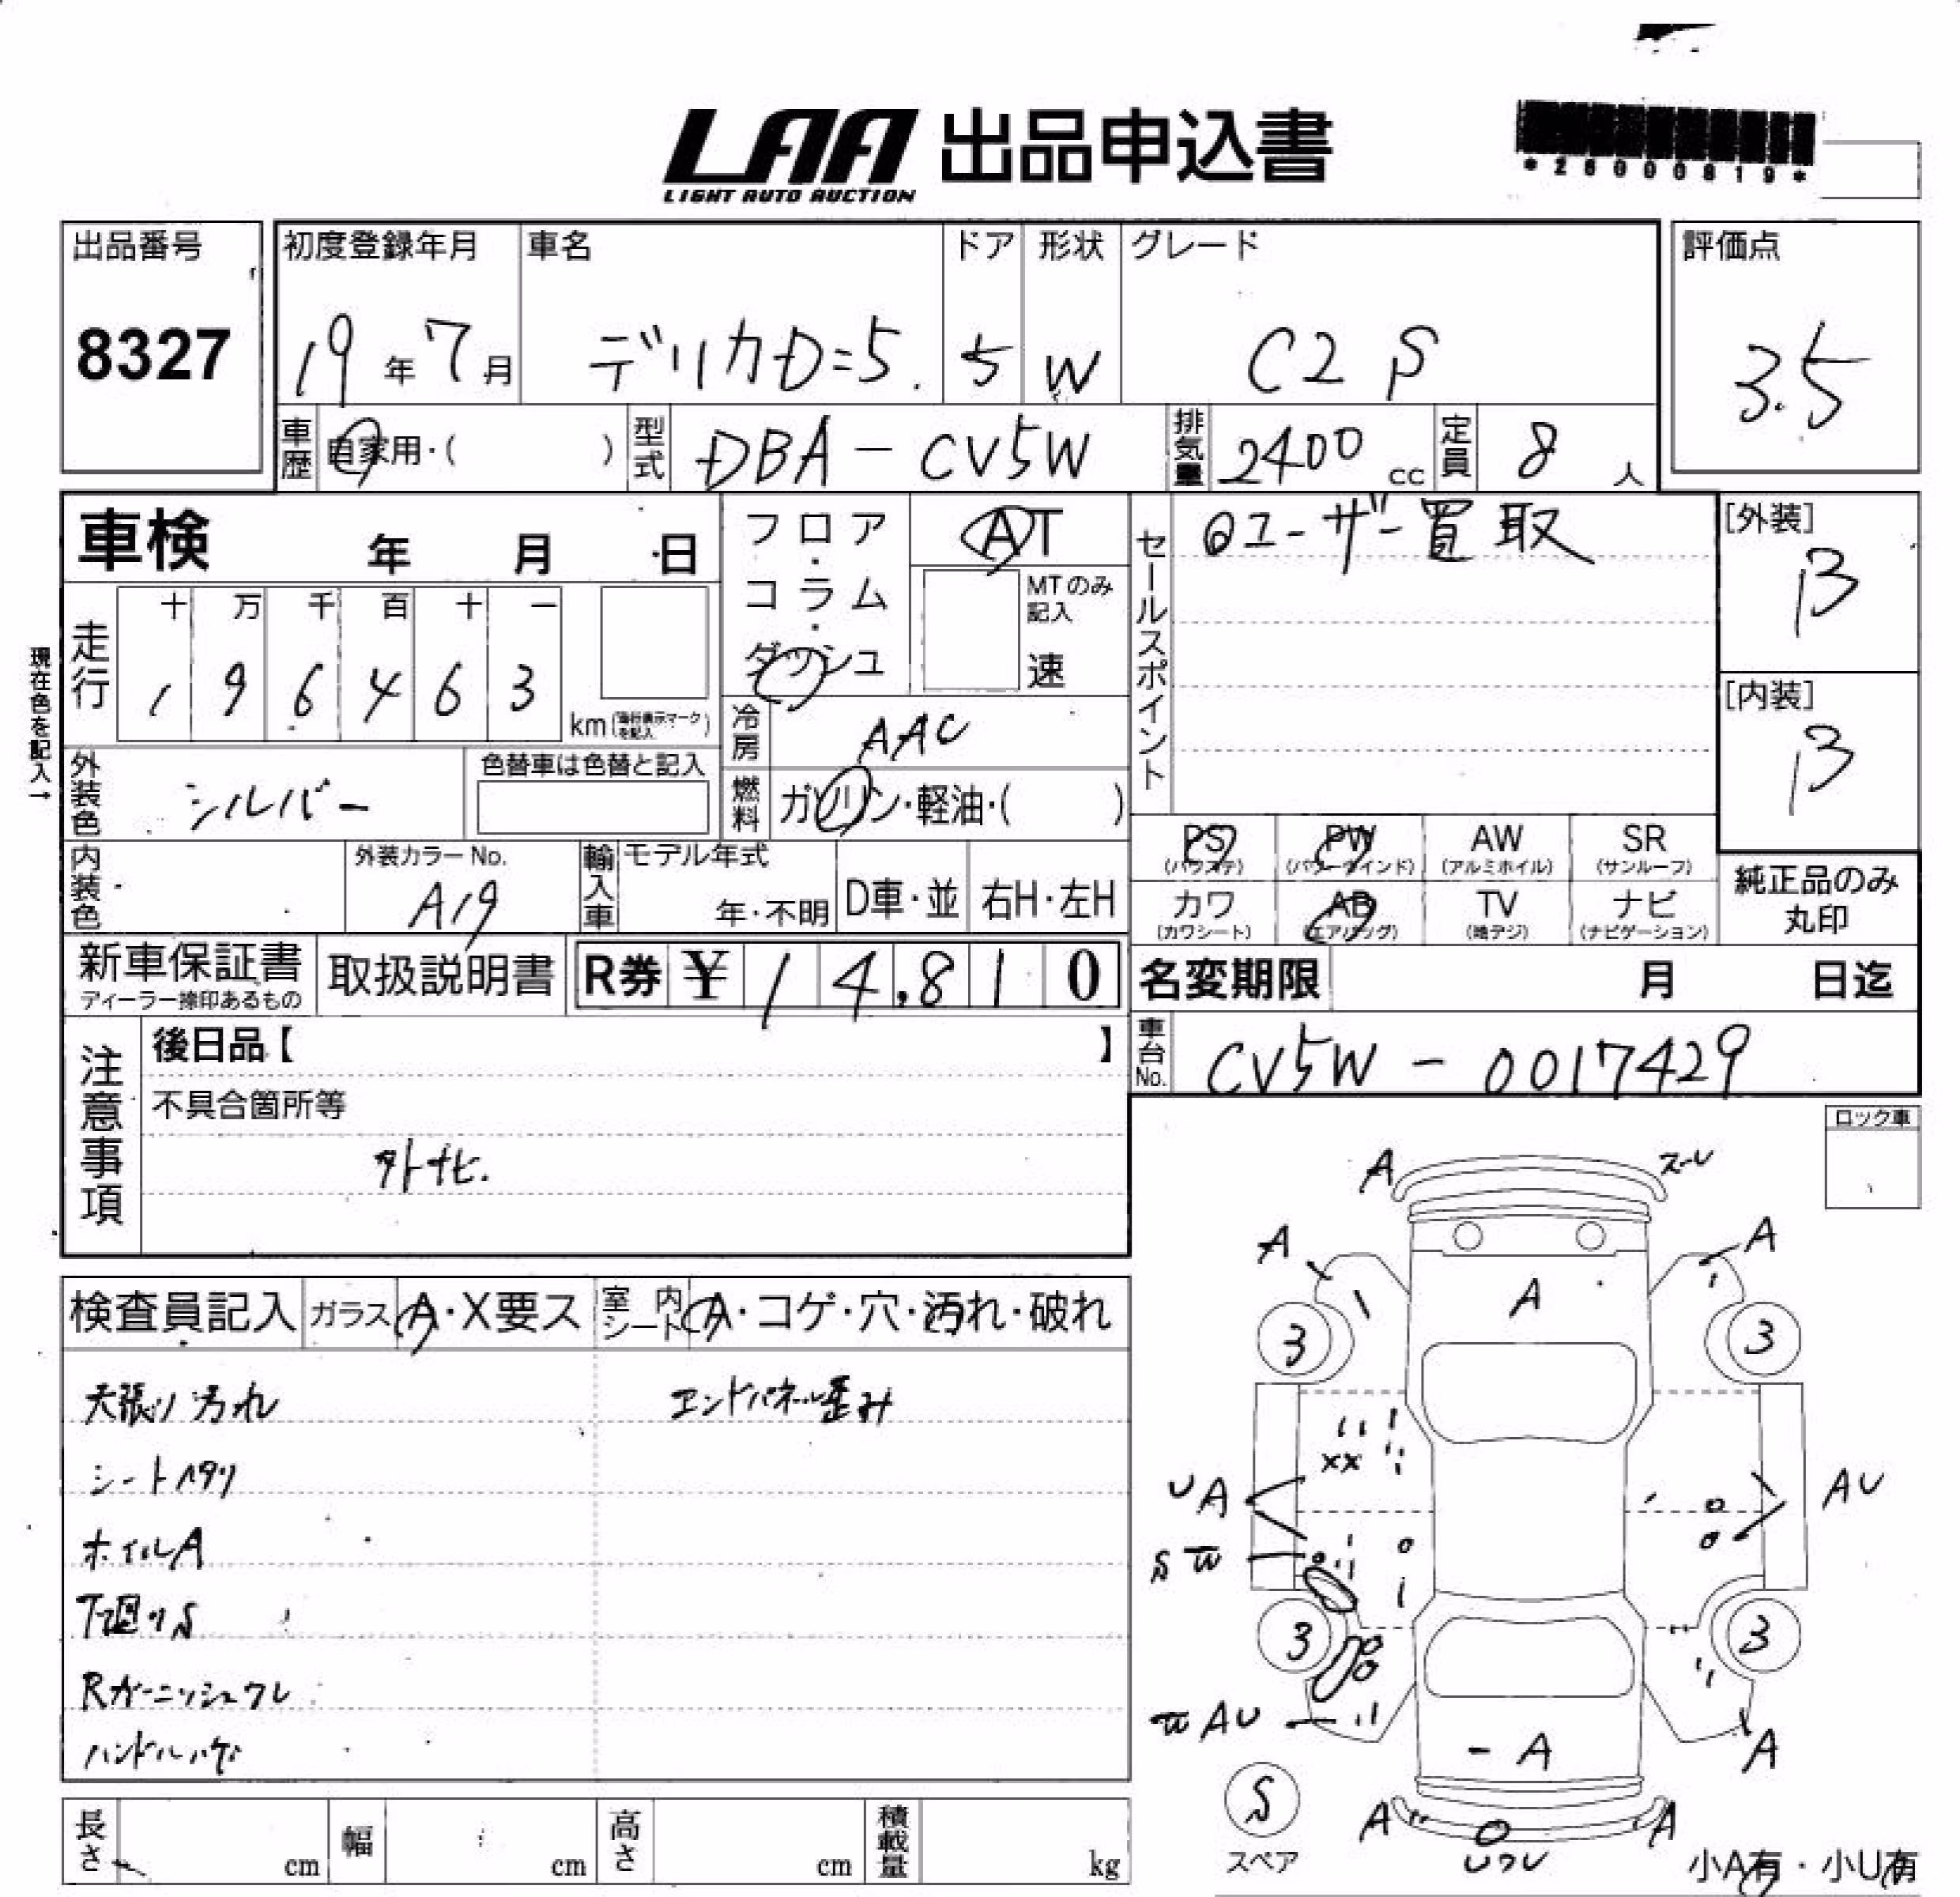 LAA 出品申込書
LIGHT AUTO AUCTION
*26000819*
出品番号
8327
初度登録年月
19年7月
車名
デリカD=5.
ドア
5
形状
W
グレード
C2 P
評価点
3.5
車歴
自家用・( )
型式
DBA-CV5W
排気量
2400cc
定員
8人
車検 年 月 日
フロア・コラム・ダッシュ
AT
MTのみ記入
速
セールスポイント
◎ユーザー買取
[外装]
B
現在色を記入→
走行
十万千百十一
196463
km(走行表示マークを記入)
冷房
AAC
[内装]
B
外装色
シルバー
色替車は色替と記入
燃料
ガソリン・軽油・( )
PS
(パワステ)
PW
(パワーウインド)
AW
(アルミホイル)
SR
(サンルーフ)
カワ
(カワシート)
AB
(エアバッグ)
TV
(地デジ)
ナビ
(ナビゲーション)
純正品のみ
丸印
内装色
外装カラーNo.
A19
輸入車
モデル年式
年・不明
D車・並
右H・左H
新車保証書
ディーラー捺印あるもの
取扱説明書
R券 ¥14,810
名変期限 月 日迄
車台No.
CV5W-0017429
注意事項
後日品【 】
不具合箇所等
外ナビ.
ロック車
検査員記入
ガラス
A・X要ス
室内シート
A・コゲ・穴・汚れ・破れ
天張り汚れ
エンドパネル歪み
シートヘタリ
ホイルA
下廻りS
Rガーニッシュワレ
ハンドルハゲ
A
A
A
A
3
3
XX
UA
AU
SW
3
3
W AU
A
A
S
スペア
A
A
Uワレ
小A有・小U有
長さ cm
幅 cm
高さ cm
積載量 kg